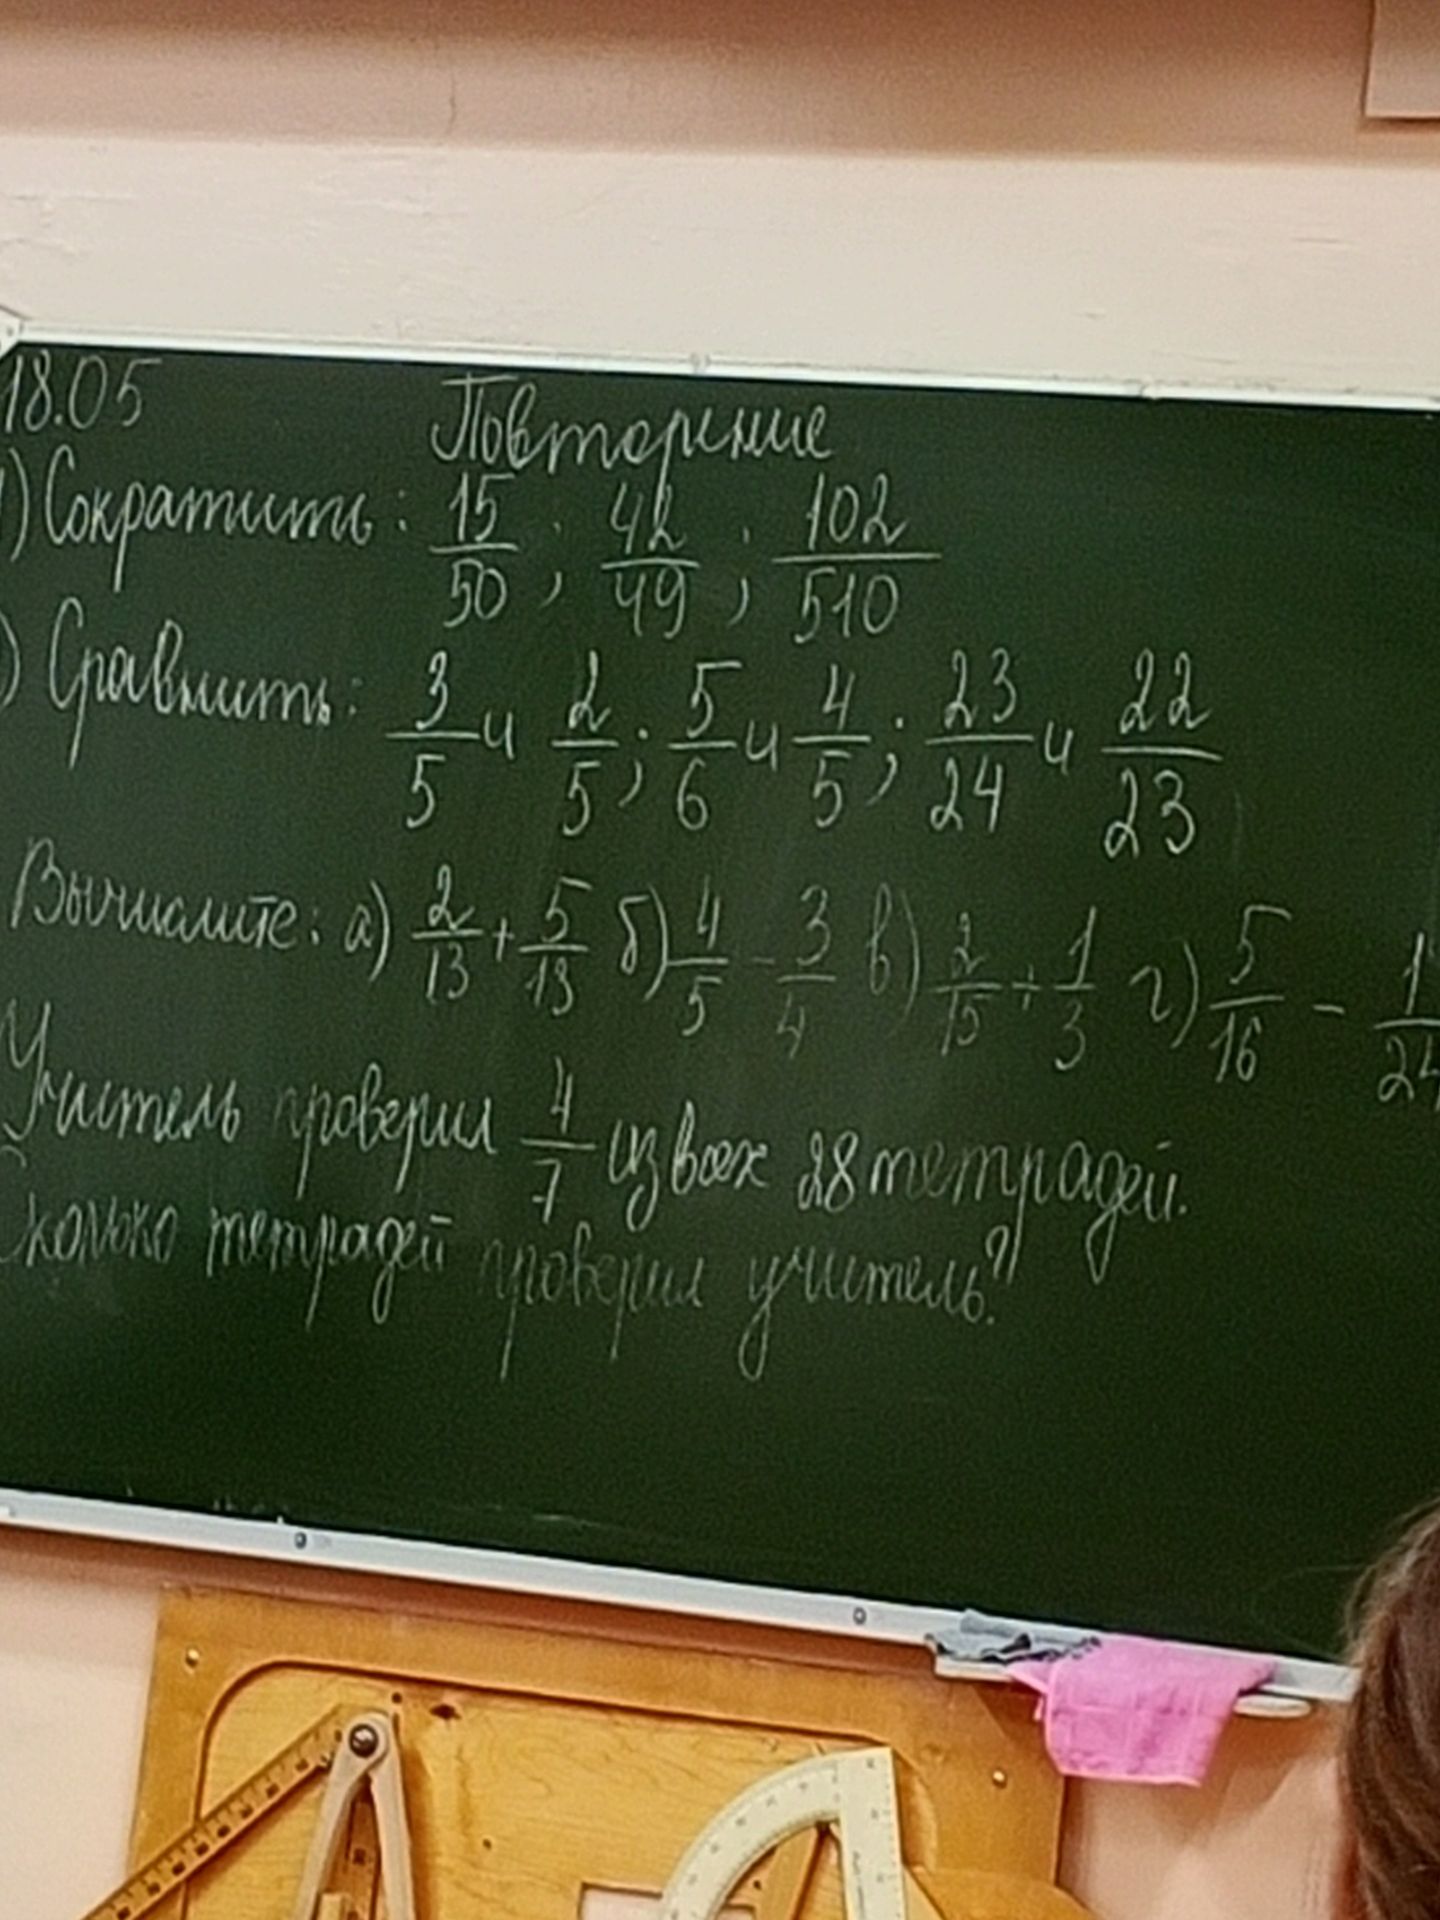 18.05 Повторение
1) Сократить: 15/50; 42/49; 102/510
) Сравнить: 3/5 и 2/5; 5/6 и 4/5; 23/24 и 22/23
Вычислите: а) 2/13 + 5/13 б) 4/5 - 3/4 в) 2/15 + 1/3 г) 5/16 - 1/24
Учитель проверил 4/7 из всех 28 тетрадей.
Сколько тетрадей проверил учитель?